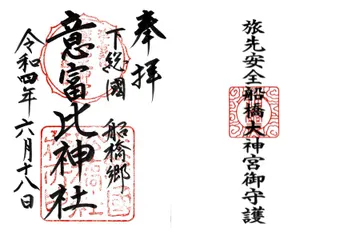 旅先安全船橋大神宮御守護
奉拝
下総國 船橋郷
意富比神社
令和四年六月十八日